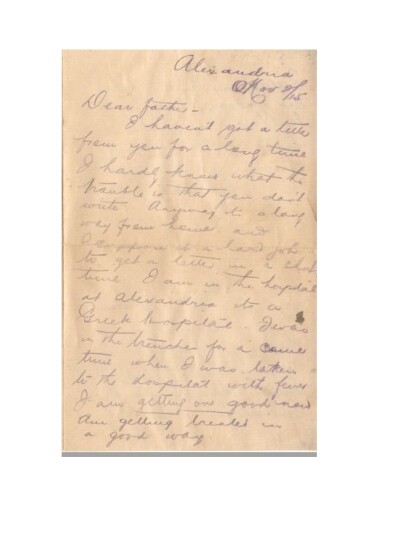 Alexandria
Nov 8/15
Dear father -
I haven't got a letter
from you for a long time
I hardly know what the
trouble is that you don't
write Anyway its a long
way from home and
I suppose it a hard job
to get a letter in a short
time I am in the hospital
at Alexandria its a
Greek hospital. I was
in the trenches for a
time when I was taken
to the hospital with fever
I am getting on good now
am getting treated in
a good way